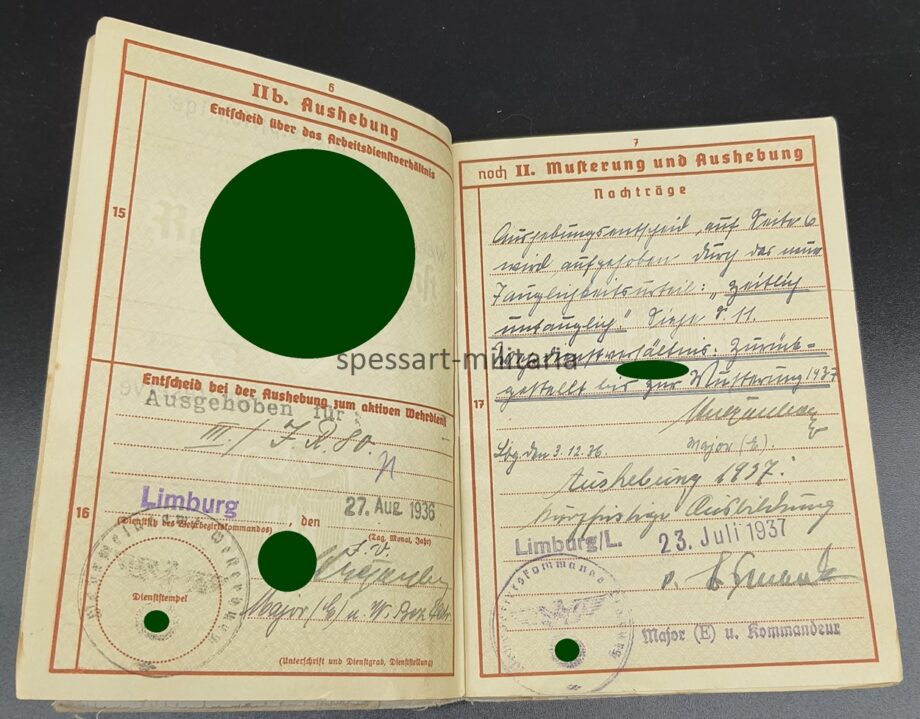 6
IIb. Aushebung
Entscheid über das Arbeitsdienstverhältnis
15
Entscheid bei der Aushebung zum aktiven Wehrdienst
Ausgehoben für
III./ J.R. 80.
16
Limburg, den 27. Aug 1936
(Dienstsitz des Wehrbezirkskommandos) (Tag, Monat, Jahr)
J. V.
Dienststempel
Major (E) u. W. Bez. Kdr.
(Unterschrift und Dienstgrad, Dienststellung)
7
noch II. Musterung und Aushebung
Nachträge
17
Aushebungsentscheid auf Seite 6
wird aufgehoben durch das neue
Tauglichkeitsurteil: „zeitlich
untauglich" Siehe S. 11.
Wehrdienstverhältnis: Zurück-
gestellt bis zur Musterung 1937
Lbg den 3.12.36. Major (E).
Aushebung 1937:
kurzfristige Ausbildung
Limburg/L. 23. Juli 1937
Major (E) u. Kommandeur
spessart-militaria